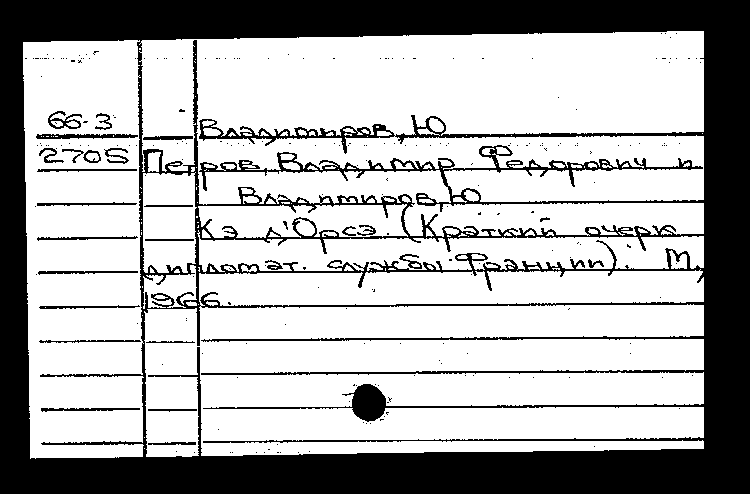 66-3
Владимиров, Ю
2705 Петров, Владимир Федорович и
Владимиров, Ю
Кэ д'Орсэ. (Краткий очерк
дипломат. службы Франции). М.,
1966.